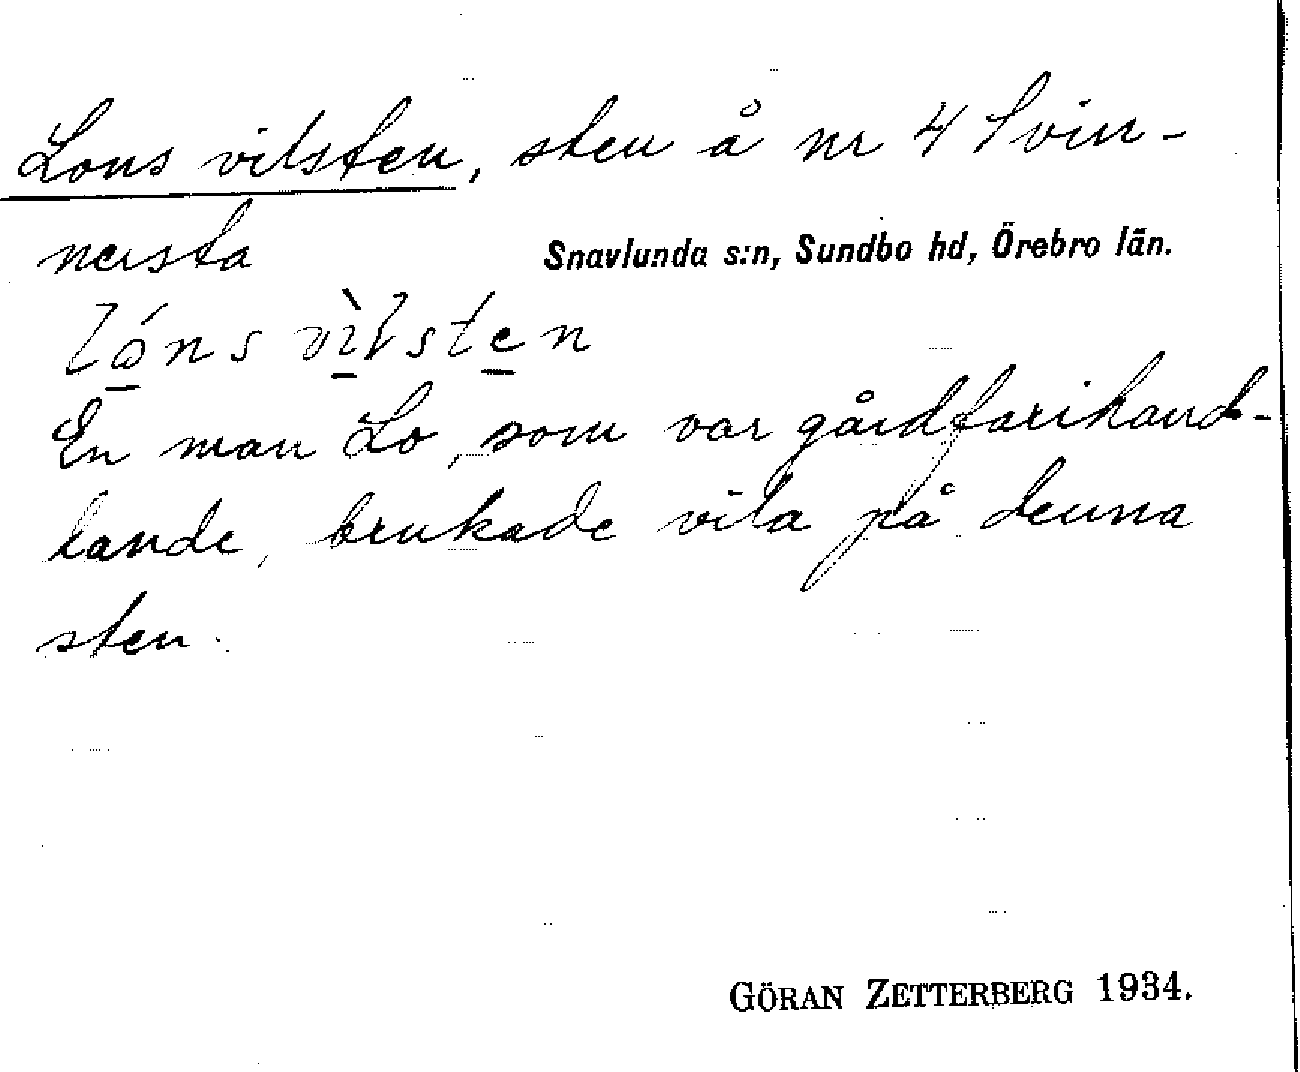 Lons vilsten, sten å nr 4 Svin-
nersta
Snavlunda s:n, Sundbo hd, Örebro län.
lóns vìlsten
En man Lo, som var gårdfarihand-
lande, brukade vila på denna
sten.
GÖRAN ZETTERBERG 1934.